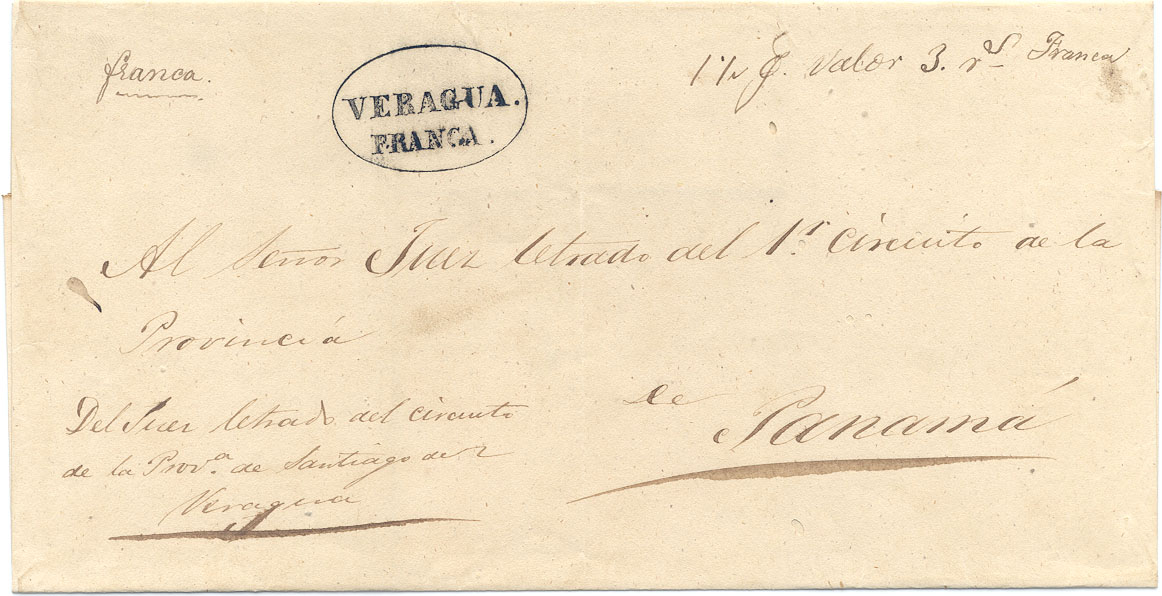 franca.
VERAGUA.
FRANCA.
Valor 3. rs Franca
Al Señor Juez letrado del 1r. circuito de la
Provinciá
de Panamá
Del Juez letrado del circuito
de la Prova. de Santiago de
Veragua